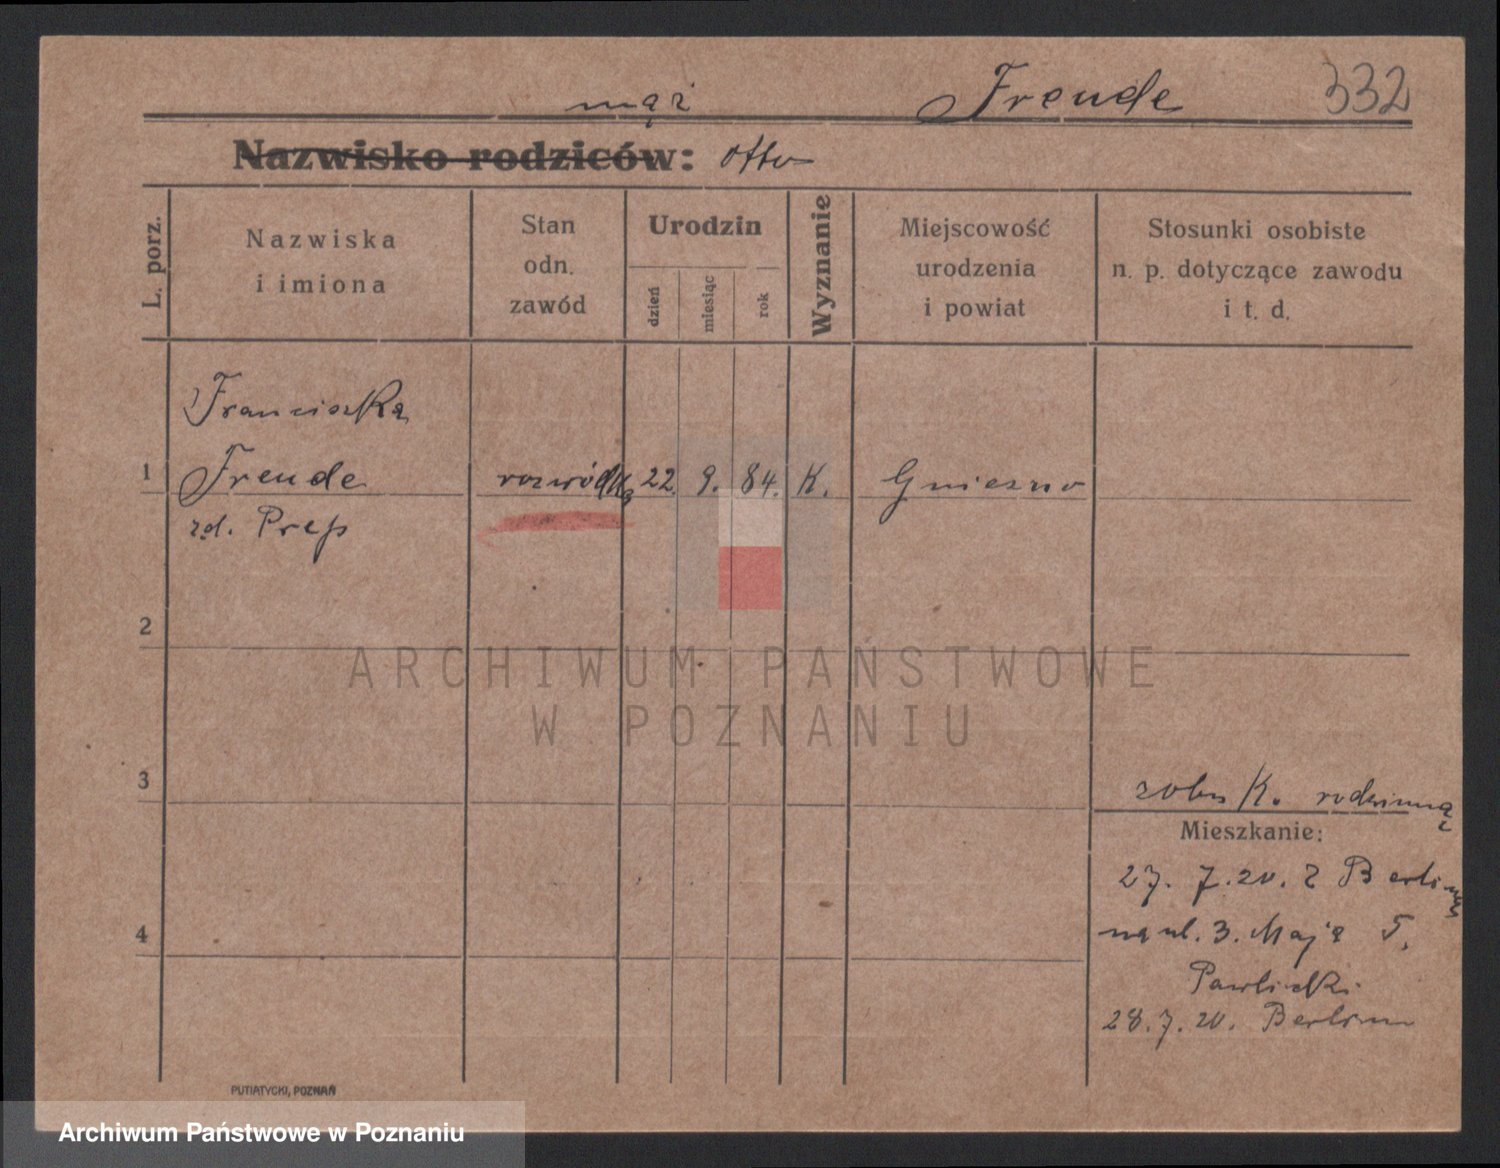 mąż Freude 332
Nazwisko rodziców: Otto
L. porz.
Nazwiska
i imiona
Stan
odn.
zawód
Urodzin
dzień
miesiąc
rok
Wyznanie
Miejscowość
urodzenia
i powiat
Stosunki osobiste
n. p. dotyczące zawodu
i t. d.
Franciszka
1 Freude rozwódka 22. 9. 84. K. Gniezno
zd. Prep
2
ARCHIWUM PAŃSTWOWE
W POZNANIU
3
K. rodzinną
Mieszkanie:
27. 7. 20. z Berlina
4
na ul. 3. Maja 5.
Pawlicki
28. 7. 20. Berlin
PUTIATYCKI, POZNAŃ
Archiwum Państwowe w Poznaniu